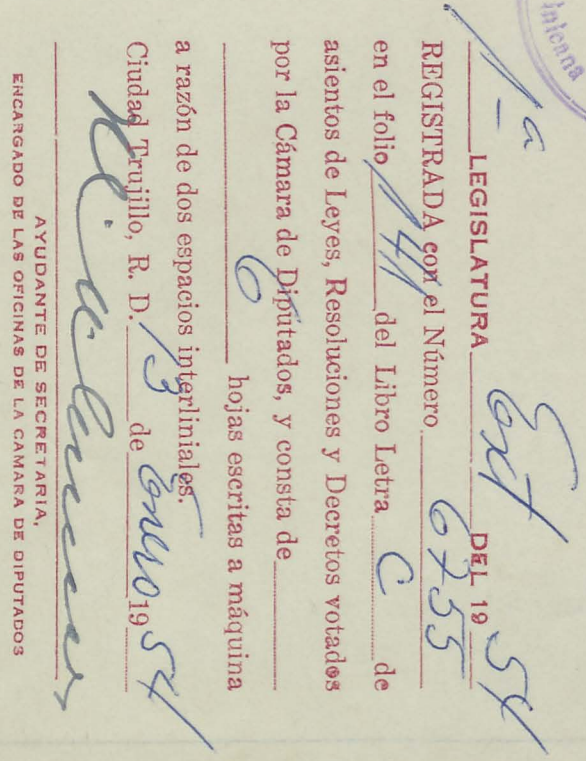 inicana
1ª LEGISLATURA Ext DEL 1954
REGISTRADA con el Número 6755
en el folio 141 del Libro Letra C de
asientos de Leyes, Resoluciones y Decretos votados
por la Cámara de Diputados, y consta de
6 hojas escritas a máquina
a razón de dos espacios interliniales.
Ciudad Trujillo, R. D. 13 de Enero 1954
AYUDANTE DE SECRETARIA,
ENCARGADO DE LAS OFICINAS DE LA CAMARA DE DIPUTADOS